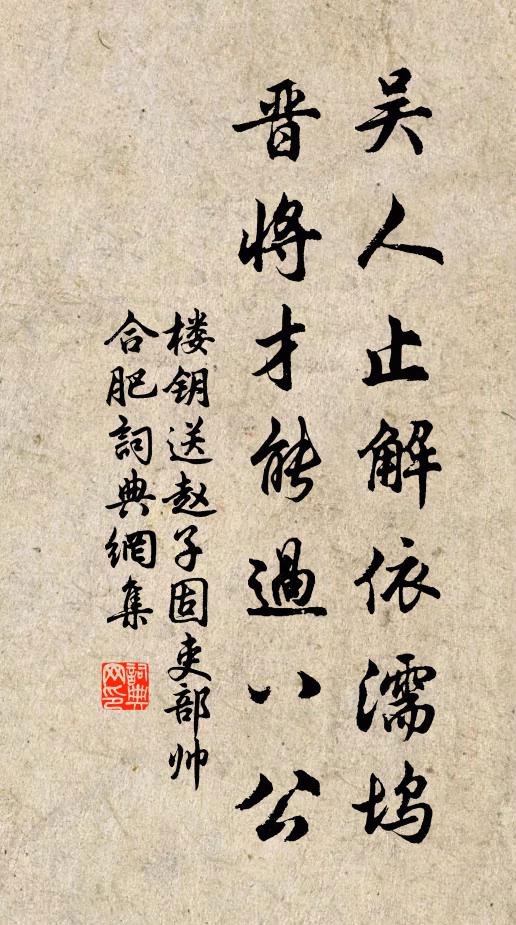 吴人止解依濡坞
晋将才能过八公
楼钥送赵子固吏部帅
合肥詞典網集
詞典网印